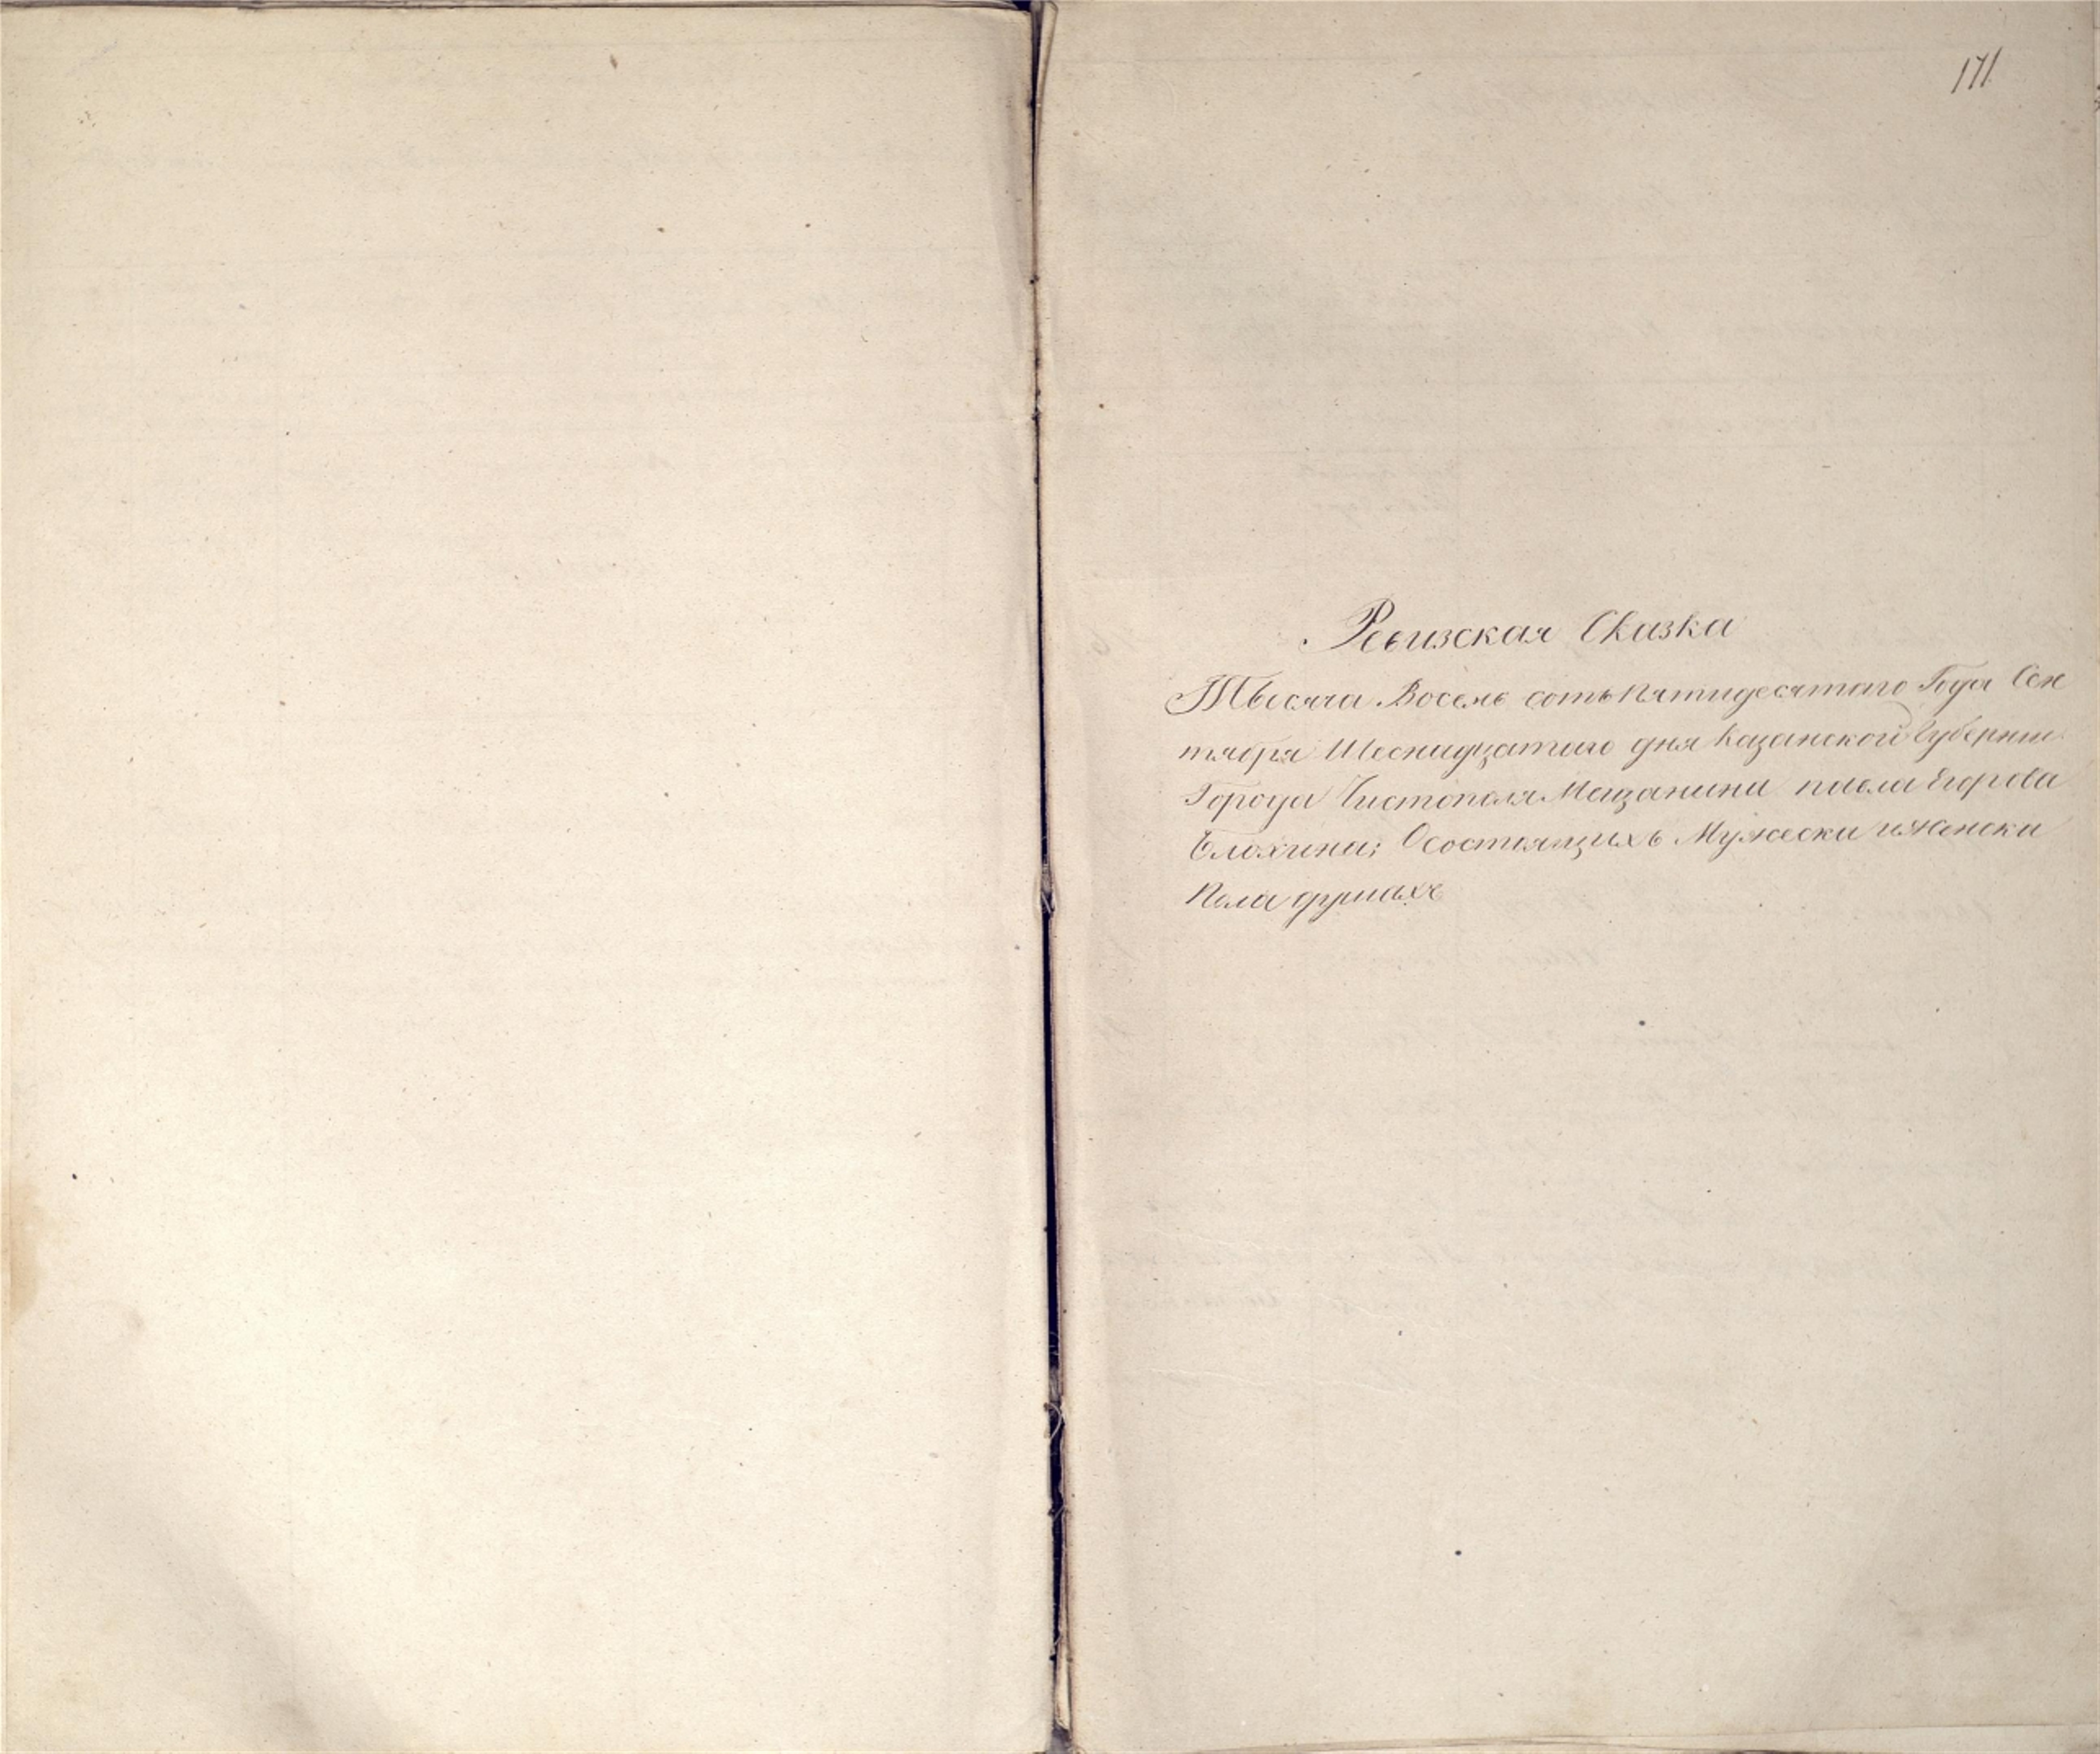 171
Ревизская Сказка
Тысяча Восемь сотъ Пятидесятаго Года Сен
тября Шеснадцатаго дня Казанской Губернии
Города Чистополя Мещанина павла Егорова
Блохина; Осостоящихъ Мужеска иженска
Пола душахъ